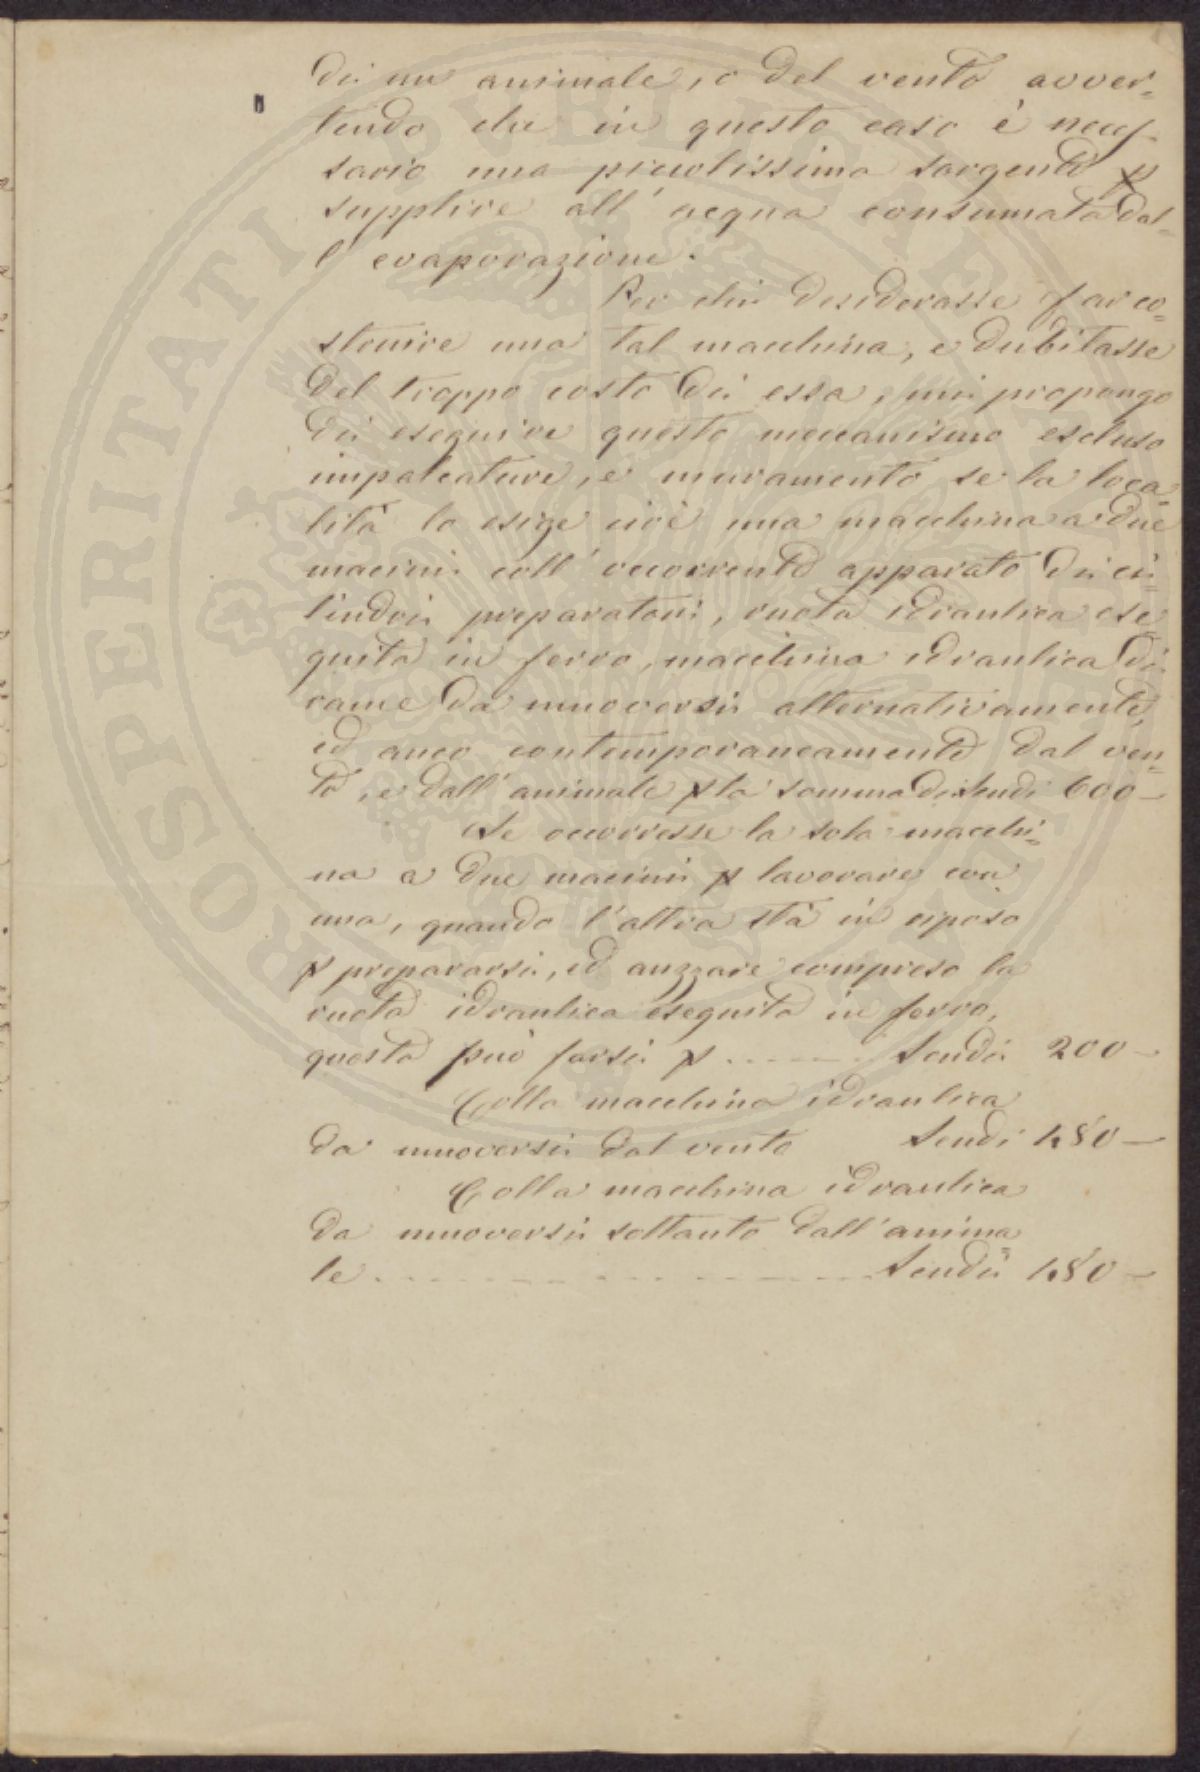 di un animale, o del vento avver=
tendo che in questo caso è neces
sario una piccolissima sargente p
supplire all'acqua consumata dal=
l'evaporazione.
Per chi desiderasse far co=
struire una tal macchina, e dubitasse
del troppo costo di essa, mi propongo
di eseguire questo meccanismo escluso
impalcature, e muramento se la loca=
lità lo esige cioè una macchina a due
macini coll'occorrente apparato di ci=
lindri preparatori, ruota idraulica ese
guita in ferro, macchina idraulica di
rame da muoversi alternativamente,
ed anco contemporaneamente dal ven=
to, e dall'animale p la somma di Scudi 600 —
Se occorresse la sola macchi=
na a due macini p lavorare con
una, quando l'altra stà in riposo
p prepararsi, ed auzzare compreso la
ruota idraulica eseguita in ferro,
questa può farsi p ........ Scudi 200 —
Colla macchina idraulica
da muoversi dal vento Scudi 480 —
Colla macchina idraulica
da muoversi soltanto dall'anima=
le ........ Scudi 480 —
PROSPERITATI PUBLICAE